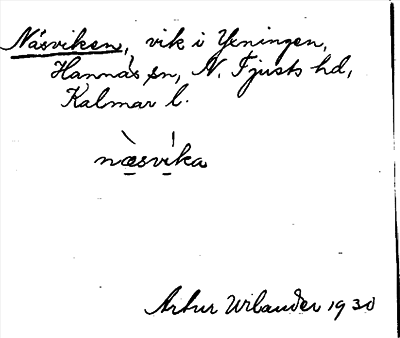 Näsviken, vik i Yxningen,
Hannäs sn, N. Tjusts hd,
Kalmar l.
næ̀svíka
Artur Wilander 1930